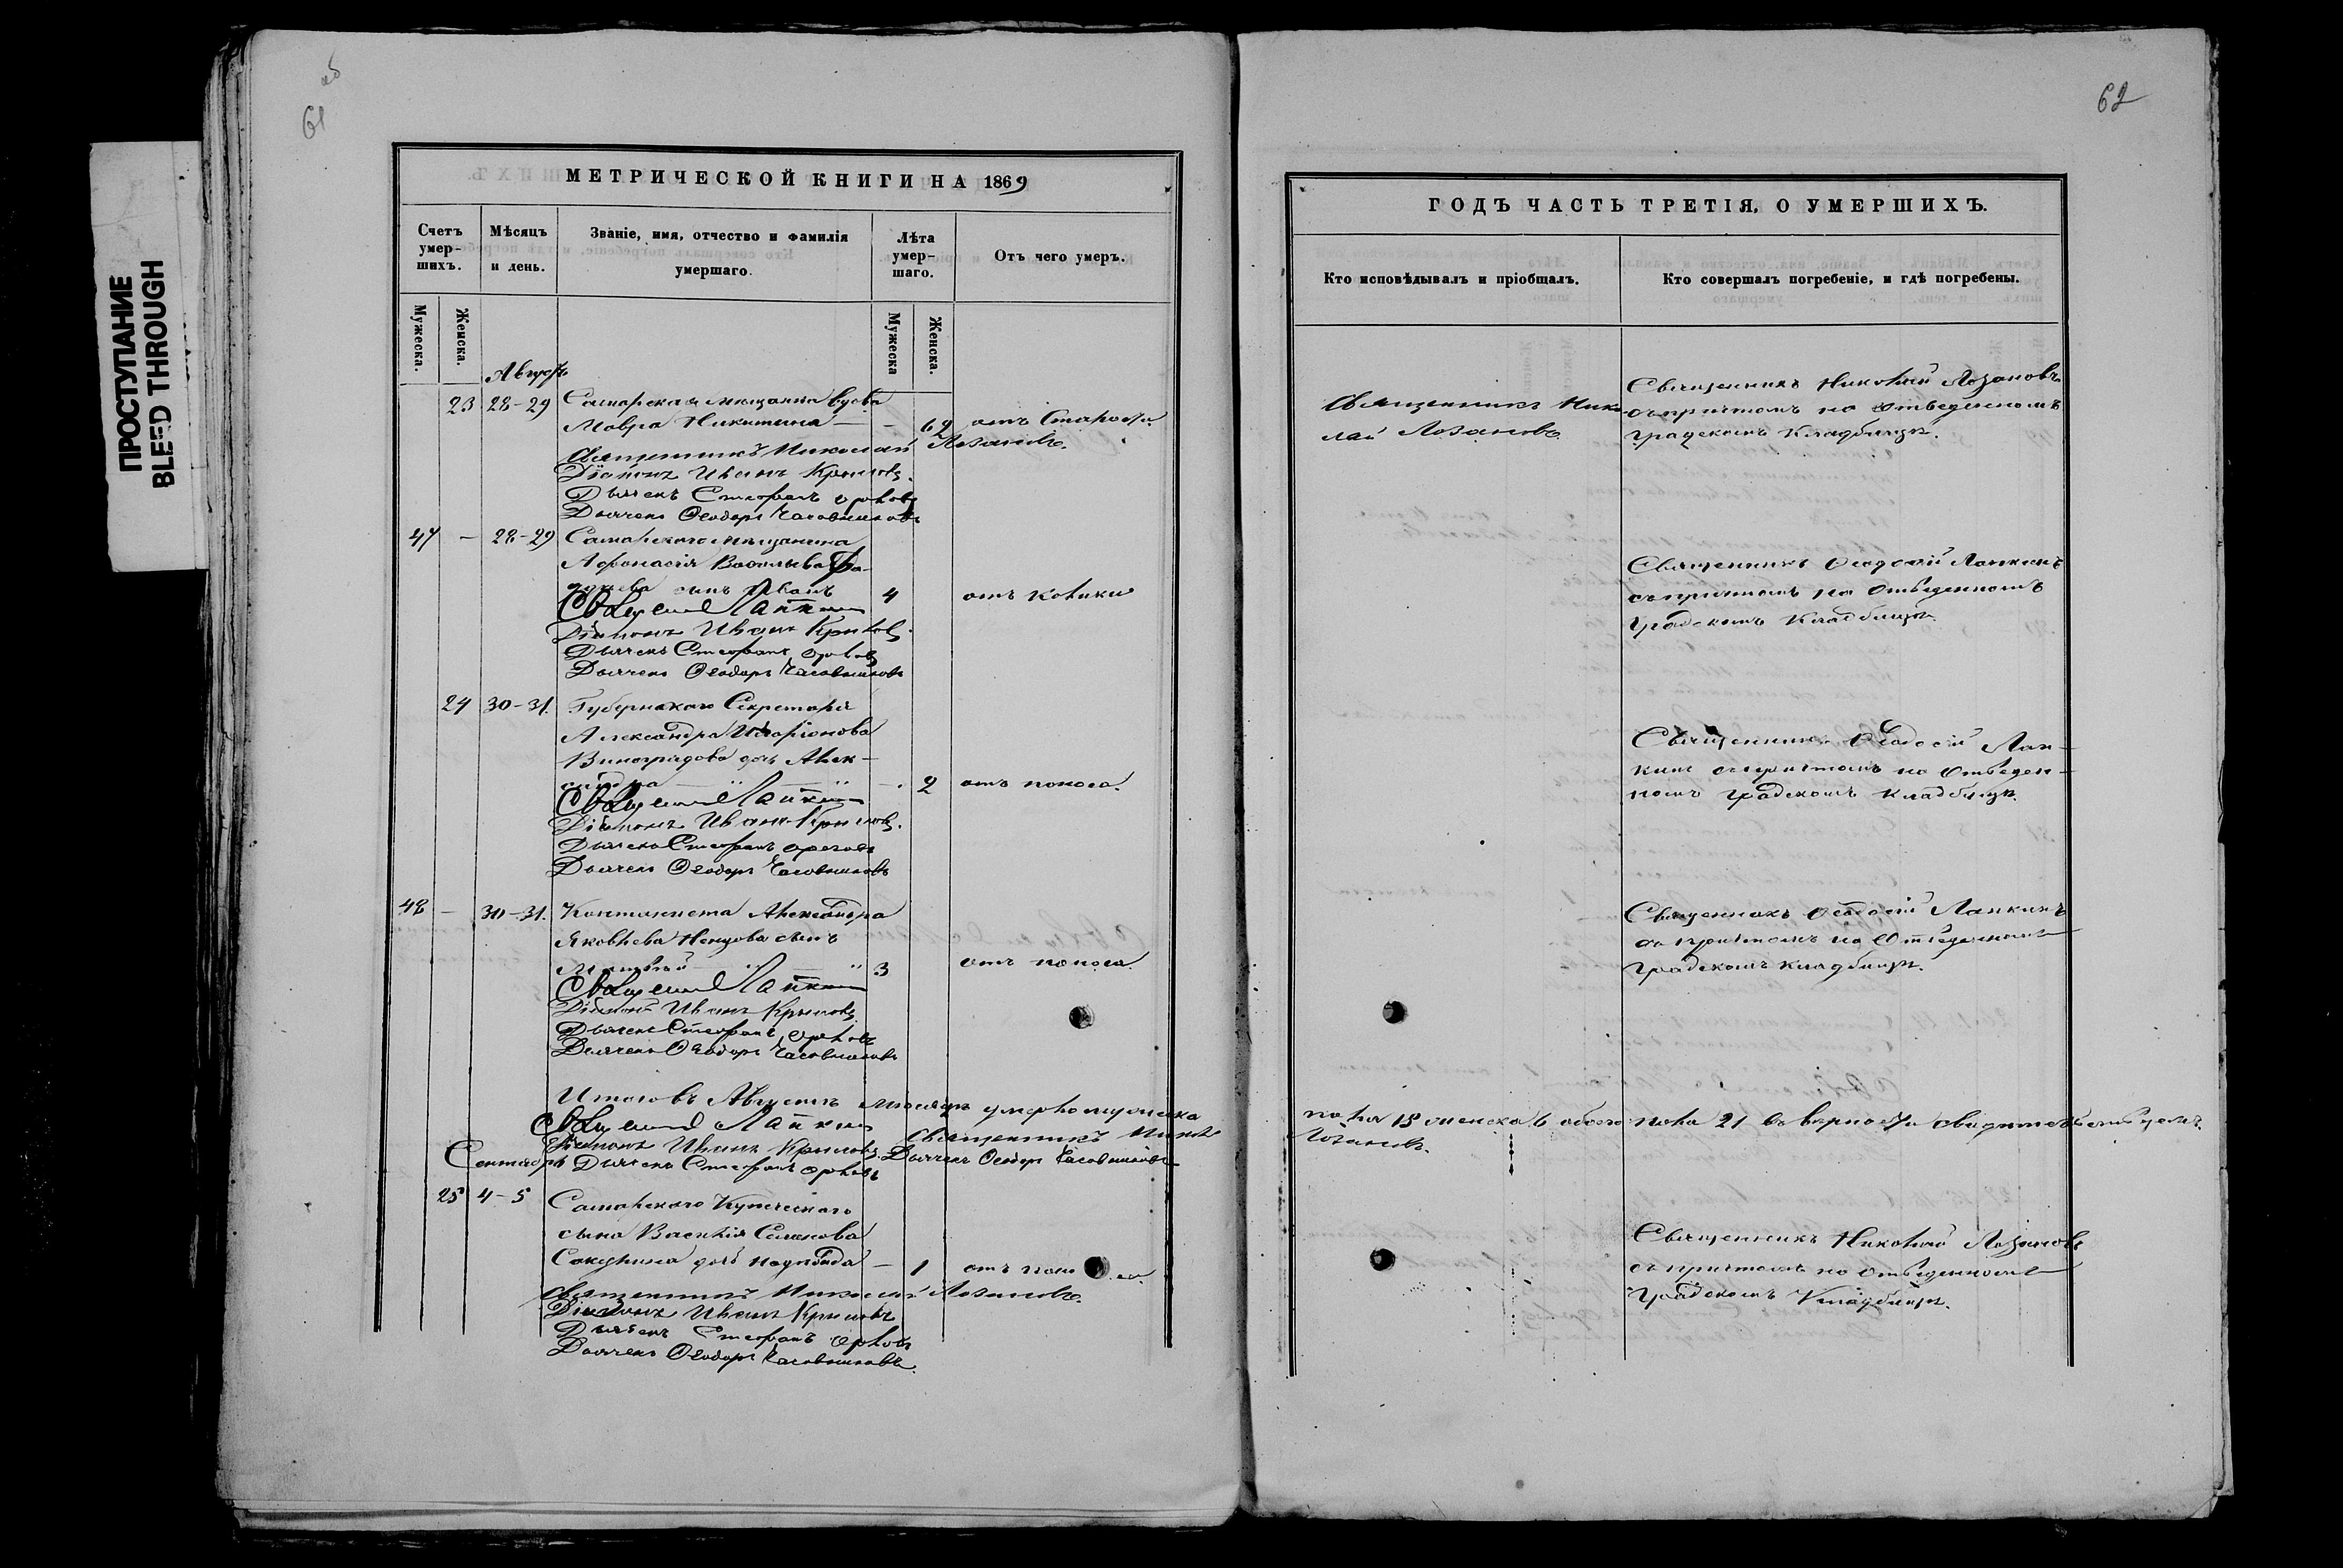 61
об
ПРОСТУПАНИЕ
BLEED THROUGH
МЕТРИЧЕСКОЙ КНИГИ НА 1869
Счетъ умер-шихъ.
Мѣсяцъ и день.
Званіе, имя, отчество и фамилія умершаго.
Лѣта умер-шаго.
Отъ чего умеръ.
Мужеска.
Женска.
Мужеска
Женска.
Августъ
23 28-29 Самарская мѣщанка вдова
Мавра Никитина — — 69 отъ Старости
Священникъ Николай Лозановъ.
Діаконъ Иванъ Крыловъ.
Дьячекъ Стефанъ Орловъ
Дьячекъ Ѳеодоръ Часовниковъ
47 — 28-29 Самарскаго мѣщанина
Афонасія Васильева
сынъ Иванъ 4 отъ колики
Священникъ Лапкинъ
Діаконъ Иванъ Крыловъ.
Дьячекъ Стефанъ Орловъ
Дьячекъ Ѳеодоръ Часовниковъ
24 30-31. Губернскаго Секретаря
Александра Иларіонова
Виноградова дочь Алек-
сандра — 2 отъ поноса.
Священникъ Лапкинъ
Діаконъ Иванъ Крыловъ.
Дьячекъ Стефанъ Орловъ
Дьячекъ Ѳеодоръ Часовниковъ
48 — 30-31. Кантониста Александра
Яковлева сынъ
3 отъ поноса.
Священникъ Лапкинъ
Діаконъ Иванъ Крыловъ
Дьячекъ Стефанъ Орловъ
Дьячекъ Ѳеодоръ Часовниковъ
Итого въ Августѣ мѣсяцѣ умерло мужеска
Священникъ Лапкинъ Священникъ Никол
Діаконъ Иванъ Крыловъ. Дьячекъ Ѳеодоръ Часовниковъ
Сентябрь Дьячекъ Стефанъ Орловъ
25 4-5 Самарскаго Купеческаго
сына Василія Семенова
дочь Надежда — 1 отъ поноса.
Священникъ Николай Лозановъ.
Діаконъ Иванъ Крыловъ
Дьячекъ Стефанъ Орловъ
Дьячекъ Ѳеодоръ Часовниковъ.
62
ГОДЪ ЧАСТЬ ТРЕТІЯ, О УМЕРШИХЪ.
Кто исповѣдывалъ и пріобщалъ.
Кто совершалъ погребеніе, и гдѣ погребены.
Священникъ Нико-
лай Лозановъ
Священникъ Николай Лозановъ
съ причтомъ на отведенномъ
градскомъ Кладбищѣ.
Священникъ Ѳеодосій Лапкинъ
съ причтомъ на отведенномъ
градскомъ Кладбищѣ.
Священникъ Ѳеодосій Лап-
кинъ съ причтомъ на отведен-
номъ градскомъ кладбищѣ.
Священникъ Ѳеодосій Лапкинъ
съ причтомъ на отведенномъ
градскомъ кладбищѣ.
пола 15 женска 6 обоего пола 21 въ верности свидѣтельствуемъ.
Лозановъ.
Священникъ Николай Лозановъ
съ причтомъ на отведенномъ
градскомъ Кладбищѣ.